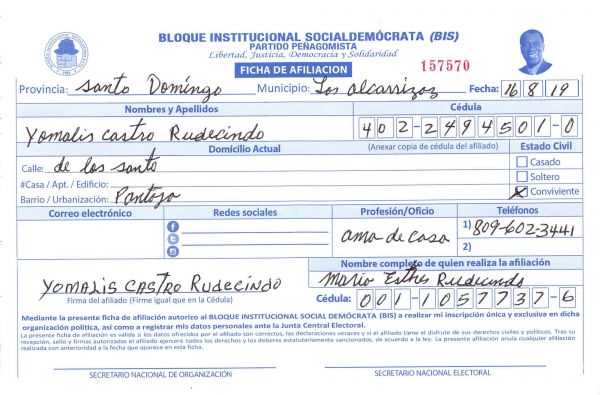 BLOQUE INSTITUCIONAL SOCIALDEMÓCRATA (BIS)
PARTIDO PEÑAGOMISTA
Libertad, Justicia, Democracia y Solidaridad
FICHA DE AFILIACION 157570
Provincia: Santo Domingo Municipio: Los alcarrizoz Fecha: 16 8 19
Nombres y Apellidos Cédula
Yomalis Castro Rudecindo 402-2494501-0
Domicilio Actual (Anexar copia de cédula del afiliado) Estado Civil
Calle: de los santo Casado
#Casa / Apt. / Edificio: Soltero
Barrio / Urbanización: Pantoja Conviviente
Correo electrónico Redes sociales Profesión/Oficio Teléfonos
ama de casa 1) 809-602-3441
2)
Nombre completo de quien realiza la afiliación
YOMALIS CASTRO RUDECINDO Mario Esther Rudecindo
Firma del afiliado (Firme igual que en la Cédula) Cédula: 001-1057737-6
Mediante la presente ficha de afiliación autorizo al BLOQUE INSTITUCIONAL SOCIAL DEMÓCRATA (BIS) a realizar mi inscripción única y exclusiva en dicha
organización política, así como a registrar mis datos personales ante la Junta Central Electoral.
La presente ficha de afiliación es válida si los datos ofrecidos por el afiliado son correctos, las declaraciones veraces y si el afiliado tiene el disfrute de sus derechos civiles y políticos. Tras su
recepción, sello y firmas autorizadas el afiliado ejercerá todos los derechos y los deberes estatutariamente sancionados, de acuerdo a la ley. La presente afiliación anula cualquier afiliación
realizada con anterioridad a la fecha que aparece en esta ficha.
SECRETARIO NACIONAL DE ORGANIZACIÓN SECRETARIO NACIONAL ELECTORAL